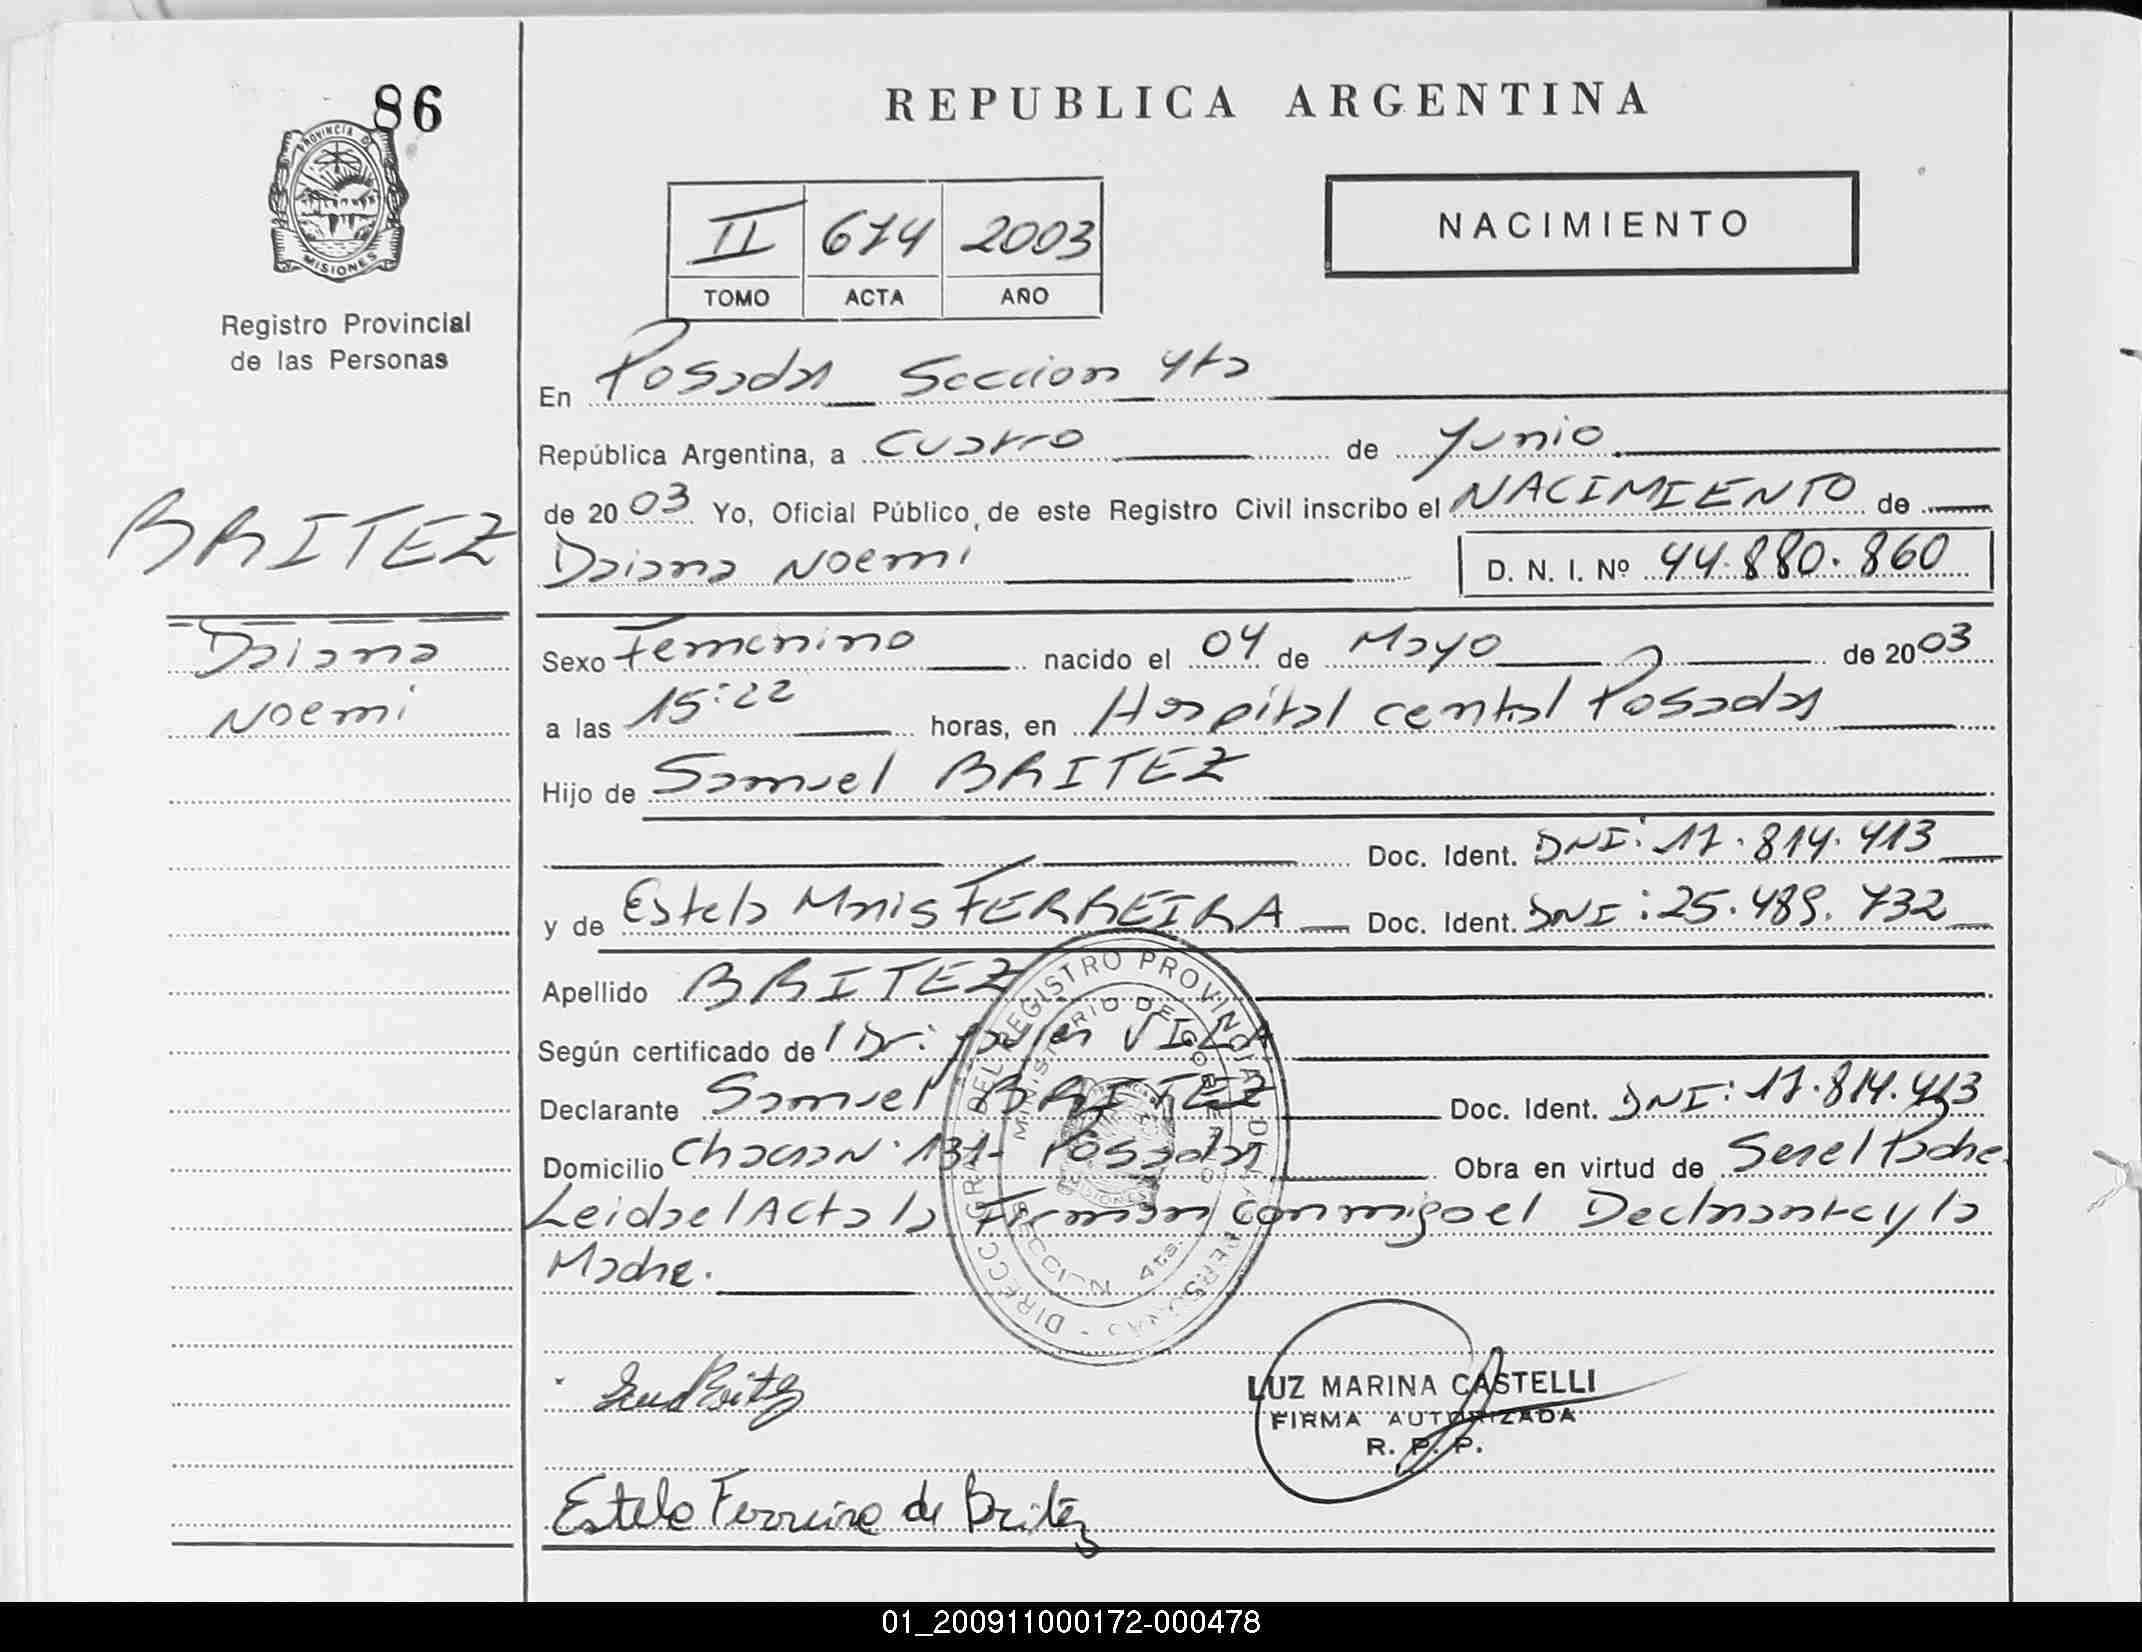 86
REPUBLICA ARGENTINA
PROVINCIA D
MISIONES
Registro Provincial
de las Personas
II 614 2003
TOMO ACTA AÑO
NACIMIENTO
En Posadas Seccion 4ta
República Argentina, a cuatro de Junio
de 2003 Yo, Oficial Público, de este Registro Civil inscribo el NACIMIENTO de
BRITEZ
Daiana Noemi D. N. I. Nº 44.880.860
Daiana
Noemi
Sexo Femenino nacido el 04 de Mayo de 2003
a las 15:22 horas, en Hospital central Posadas
Hijo de Samuel BRITEZ
Doc. Ident. DNI: 17.814.413
y de Estela Maris FERREIRA Doc. Ident. DNI: 25.489.732
Apellido BRITEZ
Según certificado de Dr: Javier VILLA
Declarante Samuel BRITEZ Doc. Ident. DNI: 17.814.413
Domicilio Chacra Nº 131- Posadas Obra en virtud de Ser el Padre.
Leida el Acta la Firman conmigo el Declarante y la
Madre.
DIRECC. GRAL. DEL REGISTRO PROVINCIAL DE LAS PERSONAS
MINISTERIO DE GOBIERNO
SECCION 4ta.
LUZ MARINA CASTELLI
FIRMA AUTORIZADA
R. P. P.
Estela Ferreira de Britez
01_200911000172-000478